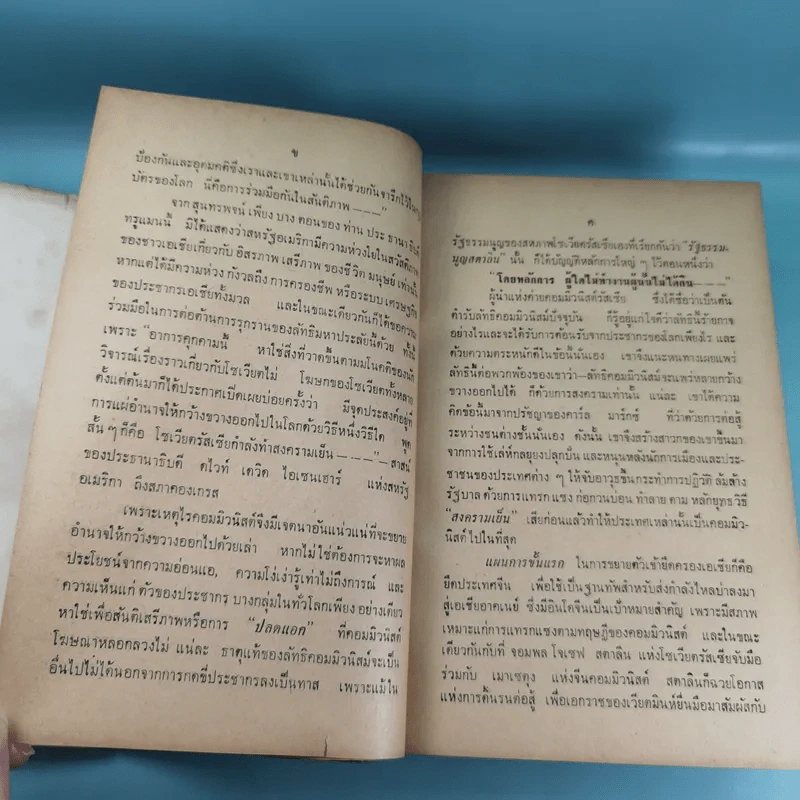 ข
ป้องกันและอุดมคติซึ่งเราและเขาเหล่านั้นได้ช่วยกันจารึกไว้ใน
บัตรของโลก นี่คือการร่วมมือกันในสันติภาพ ———"
จาก สุนทรพจน์ เพียง บาง ตอนของ ท่าน ประ ธานา ธิบดี
ทรูแมนนี้ มิได้แสดงว่าสหรัฐอเมริกามีความห่วงใยในสวัสดิภาพ
ของชาวเอเชียเกี่ยวกับ อิสรภาพ เสรีภาพ ของชีวิต มนุษย์ เท่านั้น
หากแต่ได้มีความห่วง กังวลถึง การครองชีพ หรือระบบ เศรษฐกิจ
ของประชากรเอเชียทั้งมวล และในขณะเดียวกันก็ได้ขอความ
ร่วมมือในการต่อต้านการรุกรานของลัทธิมหาประลัยนี้ด้วย ทั้งนี้
เพราะ "อาการคุกคามนี้ หาใช่สิ่งที่วาดขึ้นตามมโนคติของนัก
วิจารณ์เรื่องราวเกี่ยวกับโซเวียตไม่ โฆษกของโซเวียตทั้งหลาย
ตั้งแต่ต้นมาก็ได้ประกาศเปิดเผยบ่อยครั้งว่า มีจุดประสงค์อยู่ที่
การแผ่อำนาจให้กว้างขวางออกไปในโลกด้วยวิธีหนึ่งวิธีใด พูด
สั้น ๆ ก็คือ โซเวียตรัสเซียกำลังทำสงครามเย็น ————"—สาสน์
ของประธานาธิบดี ดไวท์ เดวิด ไอเซนเฮาร์ แห่งสหรัฐ
อเมริกา ถึงสภาคองเกรส
เพราะเหตุไรคอมมิวนิสต์จึงมีเจตนาอันแน่วแน่ที่จะขยาย
อำนาจให้กว้างขวางออกไปด้วยเล่า หากไม่ใช่ต้องการจะหาผล
ประโยชน์จากความอ่อนแอ, ความโง่เง่ารู้เท่าไม่ถึงการณ์ และ
ความเห็นแก่ ตัวของประชากร บางกลุ่มในทั่วโลกเพียง อย่างเดียว
หาใช่เพื่อสันติเสรีภาพหรือการ "ปลดแอก" ที่คอมมิวนิสต์
โฆษณาหลอกลวงไม่ แน่ละ ธาตุแท้ของลัทธิคอมมิวนิสม์จะเป็น
อื่นไปไม่ได้นอกจากการกดขี่ประชากรลงเป็นทาส เพราะแม้ใน
ค
รัฐธรรมนูญของสหภาพโซเวียตรัสเซียเองที่เรียกกันว่า "รัฐธรรม-
นูญสตาลิน" นั้น ก็ได้บัญญัติหลักการใหญ่ ๆ ไว้ตอนหนึ่งว่า
"โดยหลักการ ผู้ใดไม่ทำงานผู้นั้นไม่ได้กิน———"
ผู้นำแห่งค่ายคอมมิวนิสต์รัสเซีย ซึ่งได้ชื่อว่าเป็นต้น
ตำรับลัทธิคอมมิวนิสม์ปัจจุบัน ก็รู้อยู่แก่ใจดีว่าลัทธินี้ร้ายกาจ
อย่างไรและจะได้รับการต้อนรับจากประชากรของโลกเพียงไร และ
ด้วยความตระหนักดีในข้อนี้นั่นเอง เขาจึงแนะหนทางเผยแพร่
ลัทธินี้ต่อพวกพ้องของเขาว่า—ลัทธิคอมมิวนิสม์จะแพร่หลายกว้าง
ขวางออกไปได้ ก็ด้วยการสงครามเท่านั้น แน่ละ เขาได้ความ
คิดข้อนี้มาจากปรัชญาของคาร์ล มาร์กซ์ ที่ว่าด้วยการต่อสู้
ระหว่างชนต่างชั้นนั่นเอง ดังนั้น เขาจึงสร้างสาวกของเขาขึ้นมา
จากการใช้เล่ห์กลยุยงปลุกปั่น และหนุนหลังนักการเมืองและประ-
ชาชนของประเทศต่าง ๆ ให้จับอาวุธขึ้นกระทำการปฏิวัติ ล้มล้าง
รัฐบาล ด้วยการแทรก แซง ก่อกวนบ่อน ทำลาย ตาม หลักยุทธ วิธี
"สงครามเย็น" เสียก่อนแล้วทำให้ประเทศเหล่านั้นเป็นคอมมิว-
นิสต์ไปในที่สุด
แผนการขั้นแรก ในการขยายตัวเข้ายึดครองเอเชียก็คือ
ยึดประเทศจีน เพื่อใช้เป็นฐานทัพสำหรับส่งกำลังไหลบ่าลงมา
สู่เอเชียอาคเนย์ ซึ่งมีอินโดจีนเป็นเป้าหมายสำคัญ เพราะมีสภาพ
เหมาะแก่การแทรกแซงตามทฤษฎีของคอมมิวนิสต์ และในขณะ
เดียวกันกับที่ จอมพล โจเซฟ สตาลิน แห่งโซเวียตรัสเซียจับมือ
ร่วมกับ เมาเซตุง แห่งจีนคอมมิวนิสต์ สตาลินก็ฉวยโอกาส
แห่งการดิ้นรนต่อสู้ เพื่อเอกราชของเวียตมินห์ยื่นมือมาสัมผัสกับ